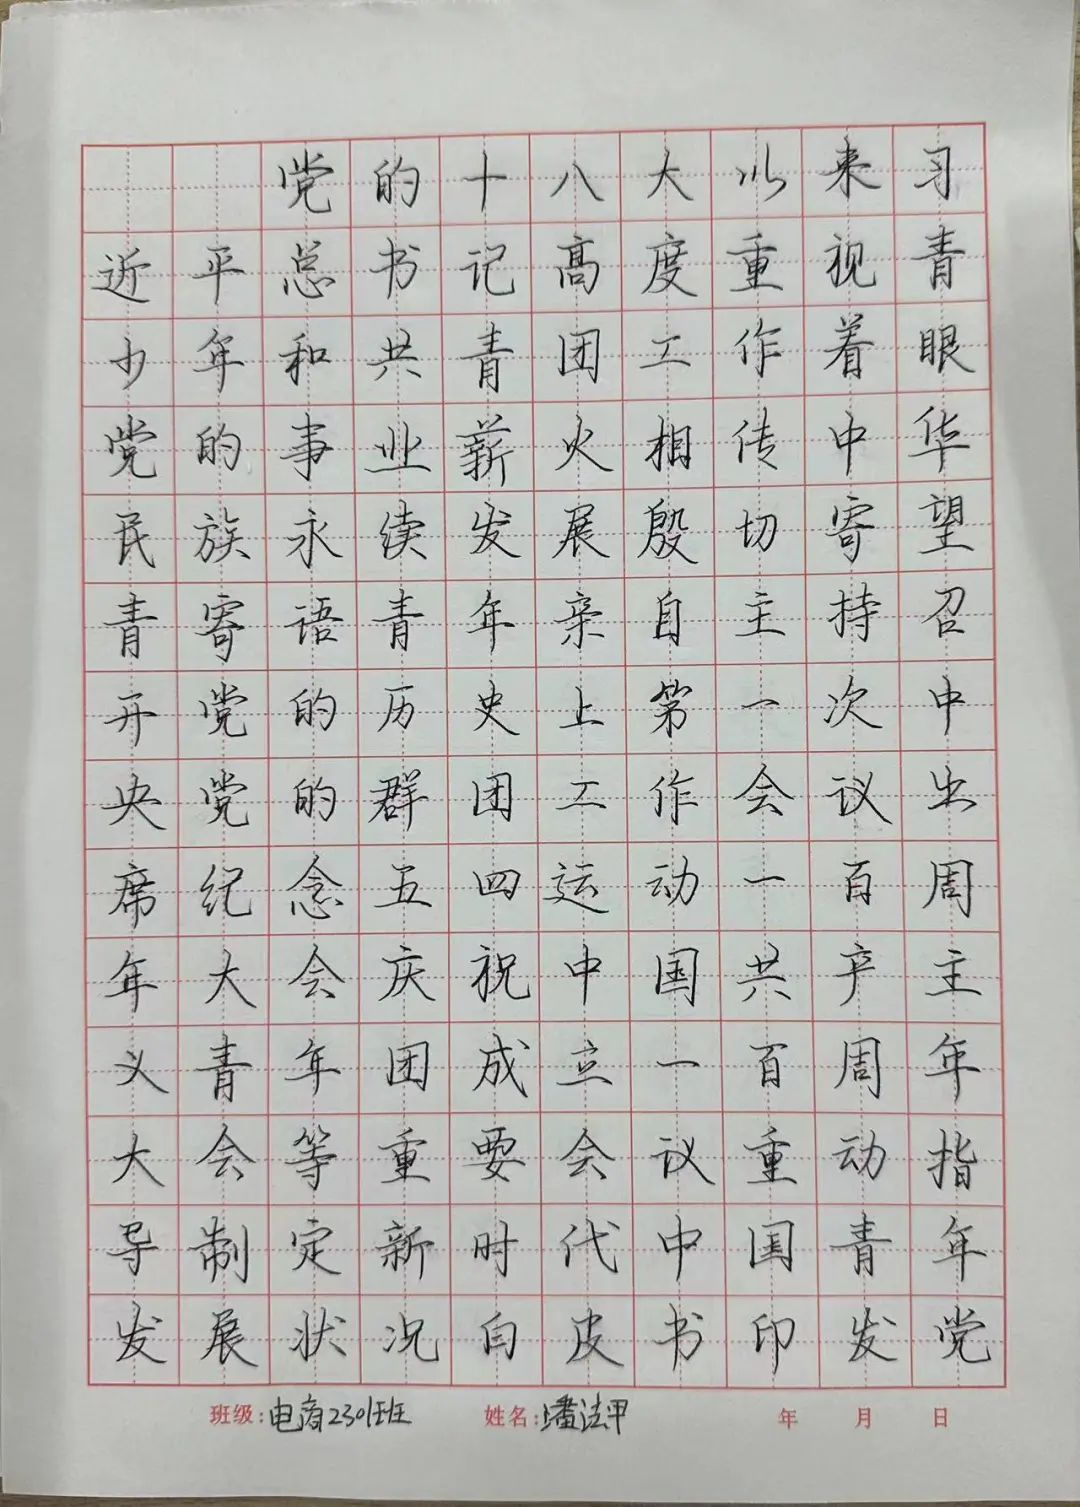 党的十八大以来习
近平总书记高度重视青
少年和共青团工作着眼
党的事业薪火相传中华
民族永续发展殷切寄望
青寄语青年亲自主持召
开党的历史上第一次中
央党的群团工作会议出
席纪念五四运动一百周
年大会庆祝中国共产主
义青年团成立一百周年
大会等重要会议重动指
导制定新时代中国青年
发展状况白皮书印发党
班级:电商2301班 姓名:潘法甲 年 月 日